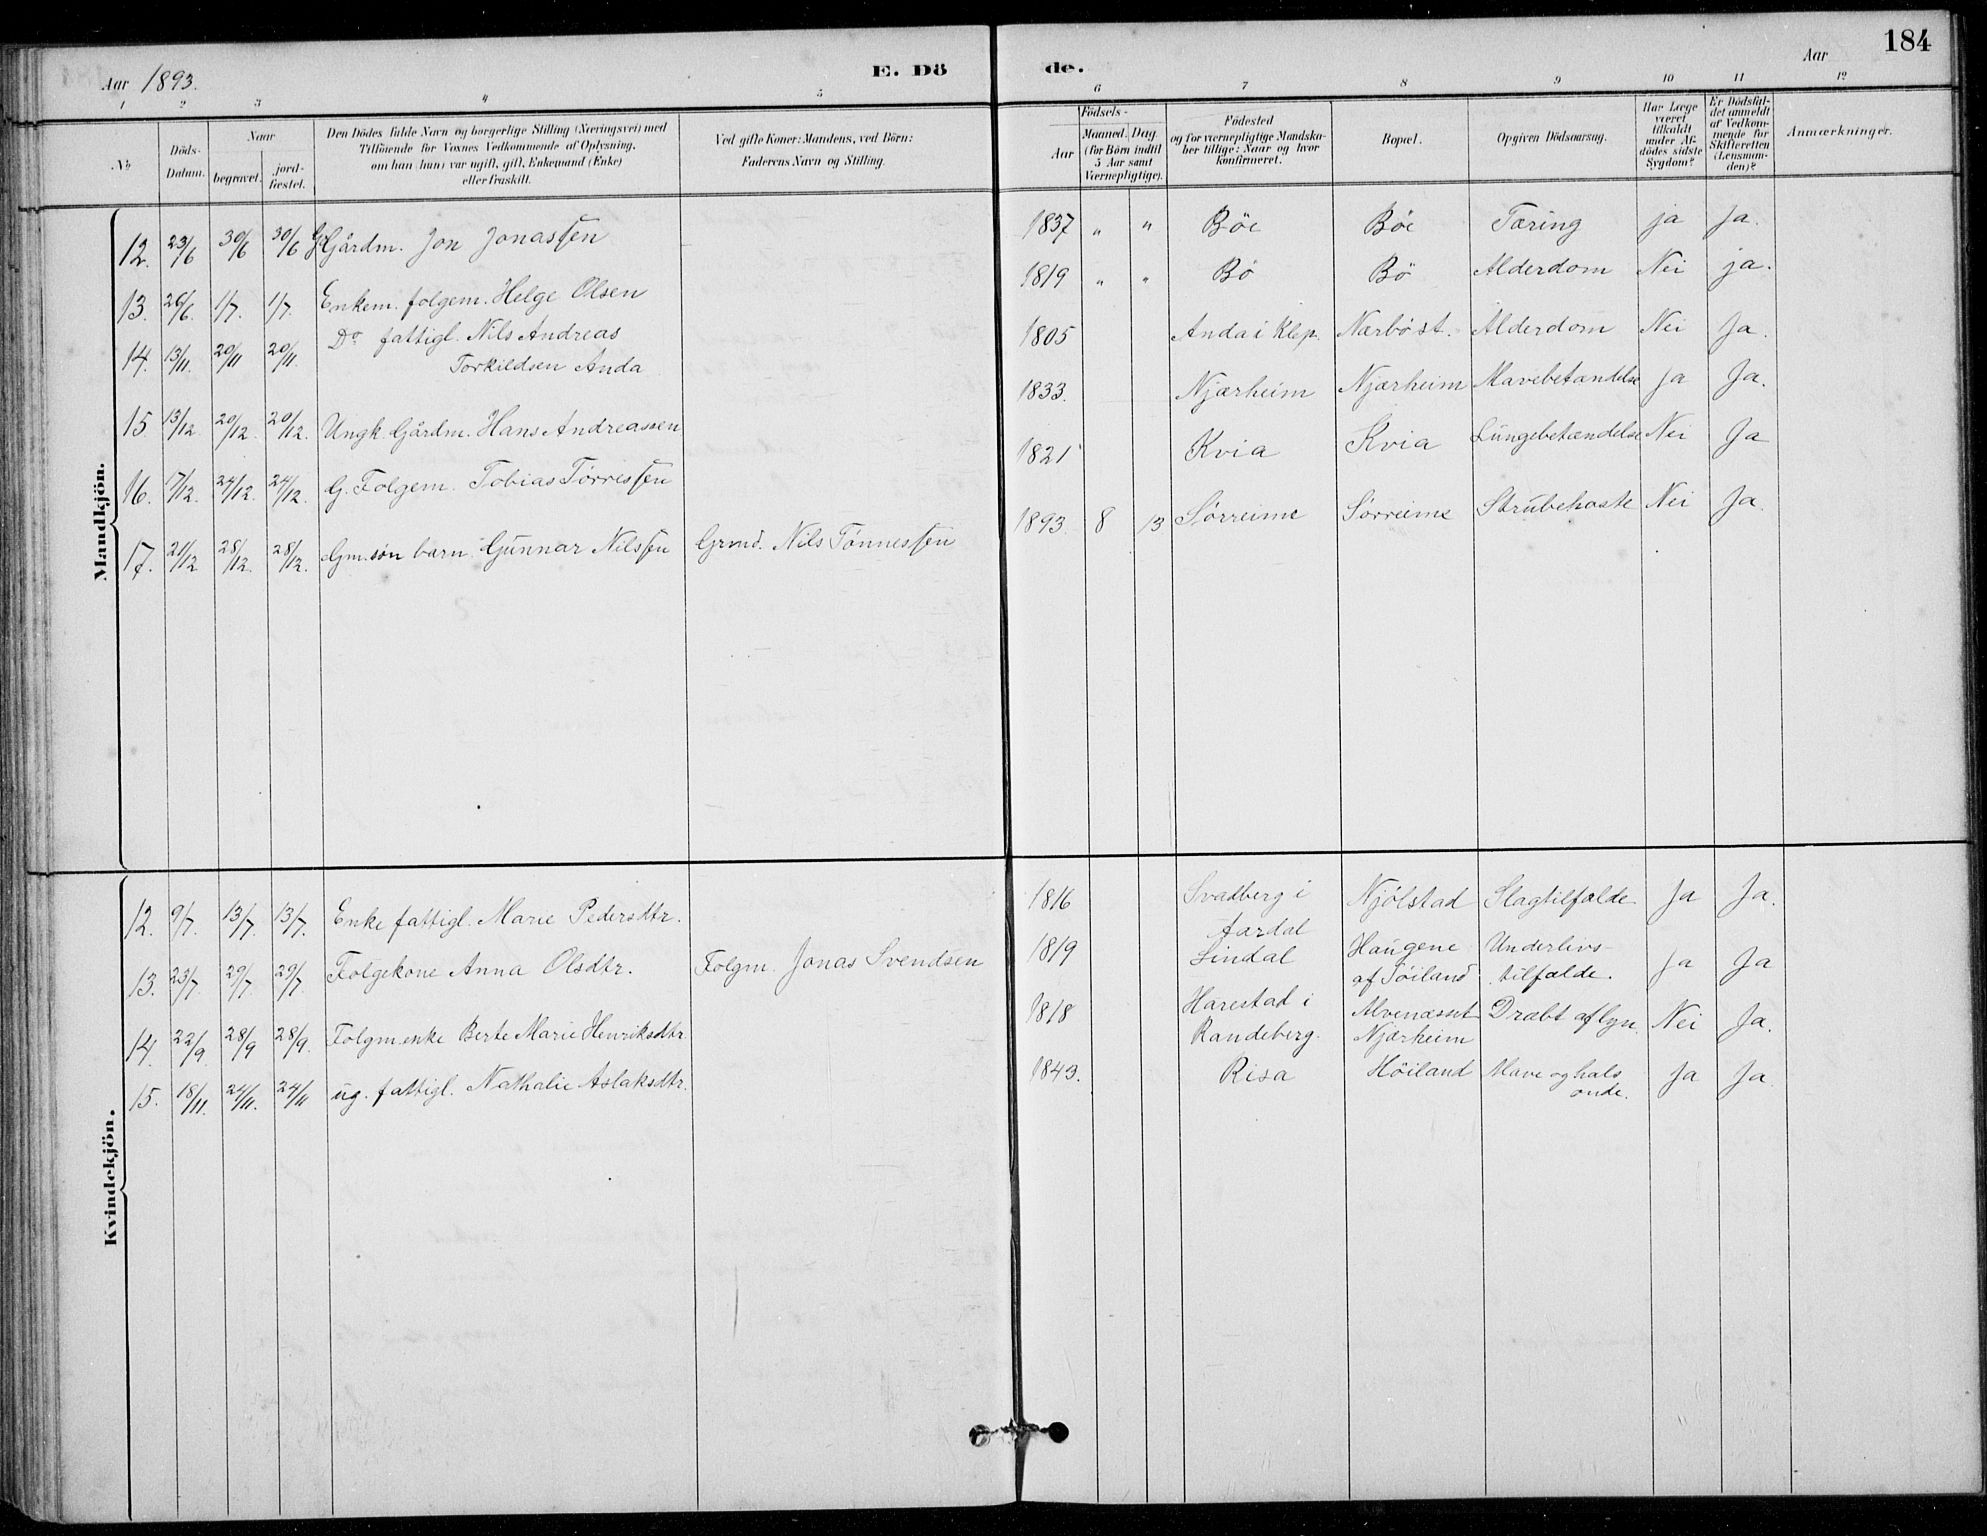 Aar 1893.
E. Dö
de.
Aar
184
1
2
3
4
5
6
7
8
9
10
11
12
No
Döds-
Datum.
Naar
begravet.
jord-
fæstet.
Den Dödes fulde Navn og borgerlige Stilling (Næringsvei) med
Tilföiende for Voxnes Vedkommende af Oplysning,
om han (hun) var ugift, gift, Enkemand (Enke)
eller fraskilt.
Ved gifte Koner: Mandens, ved Börn:
Faderens Navn og Stilling.
Födsels-
Aar
Maaned. Dag.
(for Börn indtil
5 Aar samt
Værnepligtige).
Födested
og for værnepligtige Mandska-
ber tillige: Naar og hvor
konfirmeret.
Bopæl.
Opgiven Dödsaarsag.
Har Læge
været
tilkaldt
under Af-
dödes sidste
Sygdom?
Er Dödsfal-
det anmeldt
af Vedkom-
mende for
Skifteretten
(Lensman-
den)?
Anmærkninger.
Mandkjön.
12. 23/6 30/6 30/6 Gårdm. Jon Jonassen 1837 " " Böe Böe Tæring ja Ja.
13. 26/6. 1/7. 1/7. Enkem. folgem. Helge Olsen 1819 " " Bö Bö Alderdom Nei ja.
14. 13/11. 20/11 20/11. Do fattigl. Nils Andreas
Torkildsen Anda 1805 Anda i Klep. Nærböst. Alderdom Nei Ja.
15 13/12 20/12. 20/12. Ungk. Gårdm. Hans Andreassen 1833. Njærheim Njærheim Mavebetændelse ja Ja.
16. 17/12. 24/12. 24/12. G. Folgem. Tobias Tørressen 1821 Kvia Kvia Lungebetændelse Nei Ja
17. 21/12 28/12. 28/12. Gm. søn barn Gunnar Nilssen Grmd. Nils Tønnessen 1893. 8 13 Sørreime Sørreime Strubehoste Nei Ja.
Kvindekjön.
12. 9/7. 13/7. 13/7. Enke fattigl. Marie Pedersdtr. 1816 Svadberg i
Aardal Njölstad Slagtilfælde Ja Ja.
13. 23/7. 29/7. 29/7. Folgekone Anna Olsdtr. Folgm. Jonas Svendsen 1819 Lindal Haugene
af Töiland Underlivs-
tilfælde. Ja Ja
14. 22/9. 28/9 28/9. Folgm.enke Berte Marie Henriksdtr. 1818 Harestad i
Randeberg.
Njærheim Dræbt af lyn. Nei Ja.
15. 18/11. 24/11. 24/11 ug. fattigl. Nathalie Aslaksdtr. 1843. Risa Höiland Mave og hals
onde. Ja Ja.